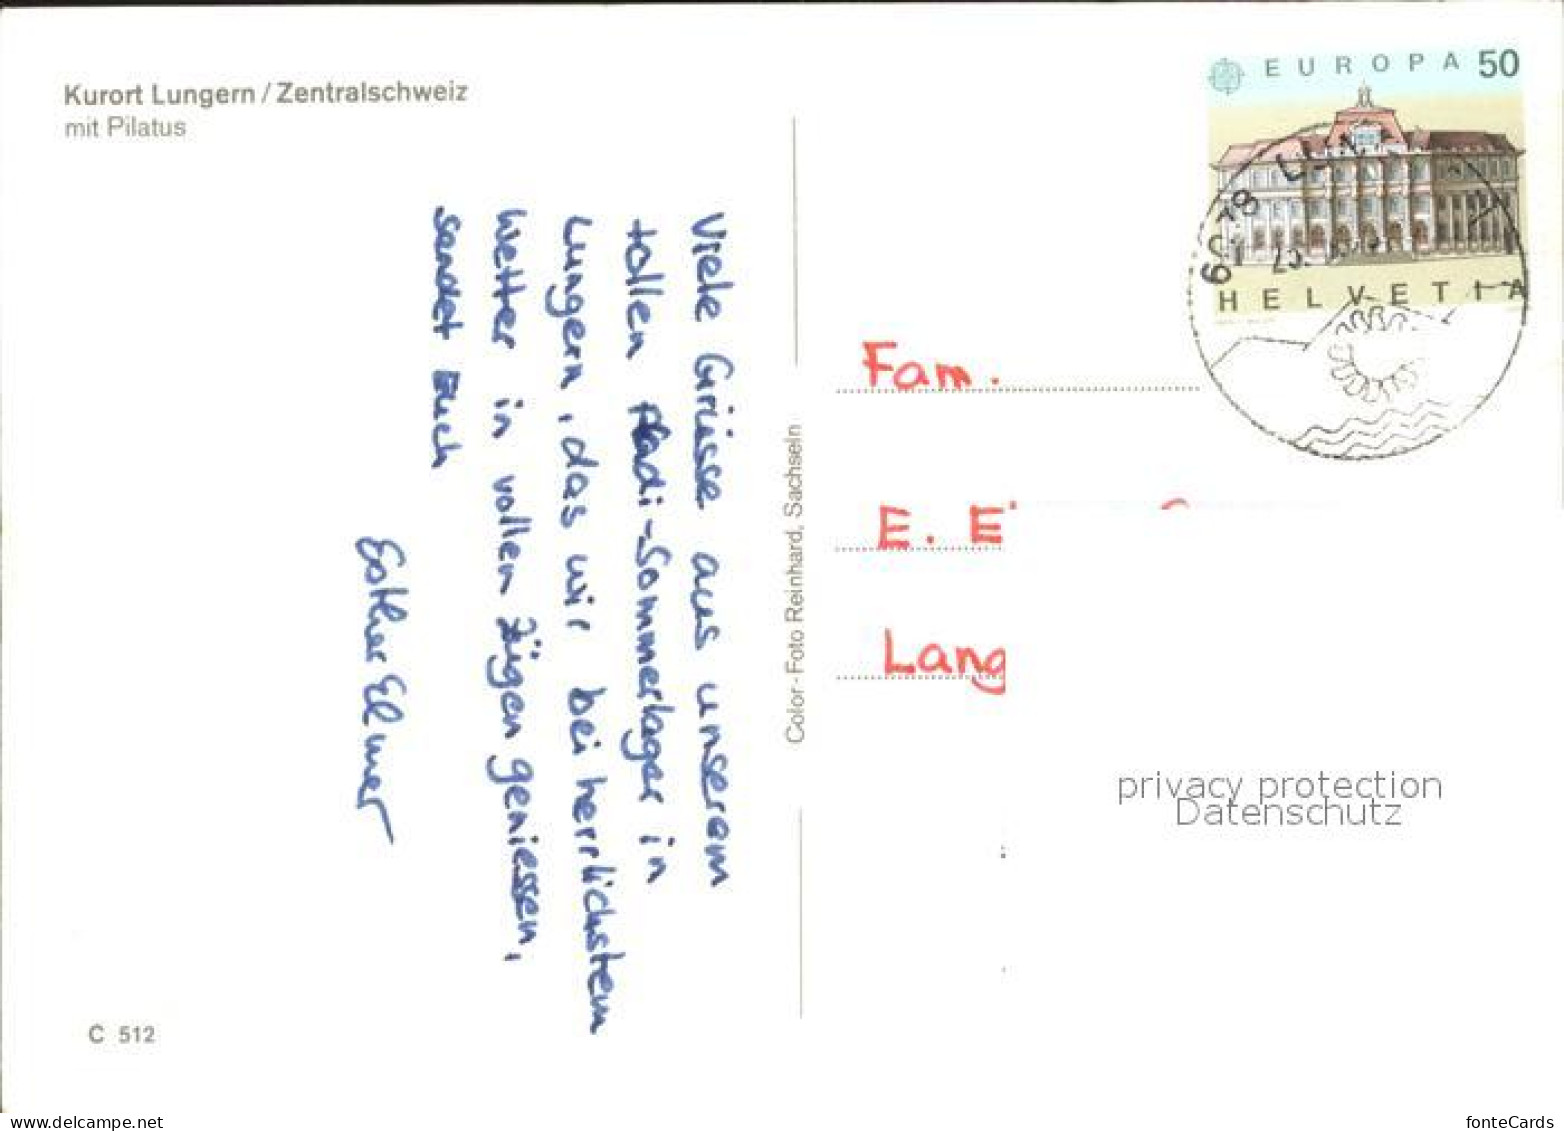 Kurort Lungern / Zentralschweiz
mit Pilatus
EUROPA 50
HELVETIA
6078
Viele Grüsse aus unserem
tollen Pfadi-Sommerlager in
Lungern, das wir bei herrlichstem
Wetter in vollen Zügen geniessen,
sendet Euch
Esther Elmer
Color-Foto Reinhard, Sachseln
Fam.
E. E
Lang
privacy protection
Datenschutz
C 512
www.delcampe.net
fonteCards